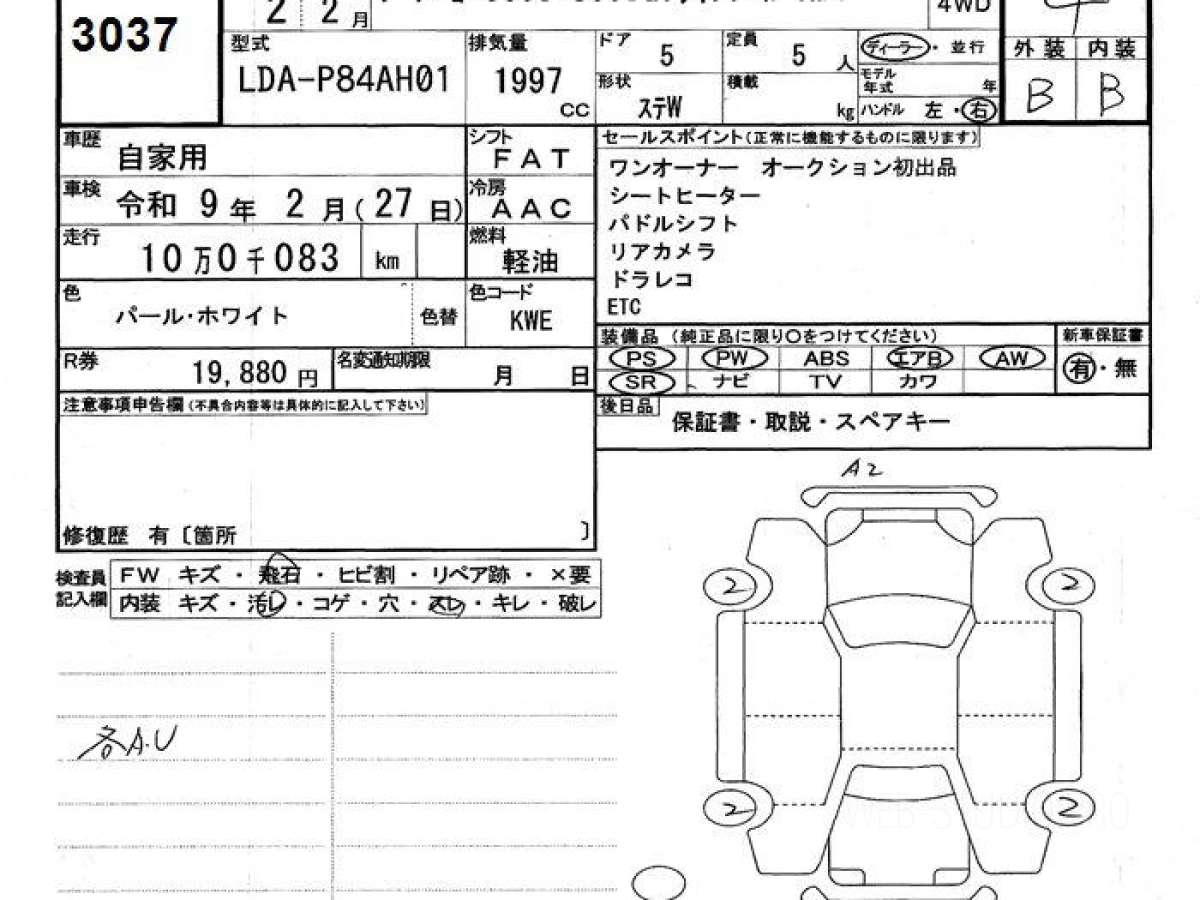 3037
2 2月
4WD
型式
LDA-P84AH01
排気量
1997
CC
ドア
5
定員
5 人
ディーラー・並行
外装 内装
形状
ステW
積載
kg
モデル年式 年
ハンドル 左・右
B B
車歴
自家用
シフト
FAT
セールスポイント(正常に機能するものに限ります)
ワンオーナー オークション初出品
シートヒーター
パドルシフト
リアカメラ
ドラレコ
ETC
車検
令和 9年 2月(27日)
冷房
AAC
走行
10万0千083 km
燃料
軽油
色
パール・ホワイト
色替
色コード
KWE
装備品 (純正品に限り○をつけてください)
新車保証書
PS PW ABS エアB AW
有・無
SR ナビ TV カワ
R券
19,880円
名変通知期限
月 日
注意事項申告欄(不具合内容等は具体的に記入して下さい)
後日品
保証書・取説・スペアキー
修復歴 有〔箇所 〕
検査員記入欄
FW キズ・飛石・ヒビ割・リペア跡・×要
内装 キズ・汚レ・コゲ・穴・スレ・キレ・破レ
各A.U
A2
2 2
2 2